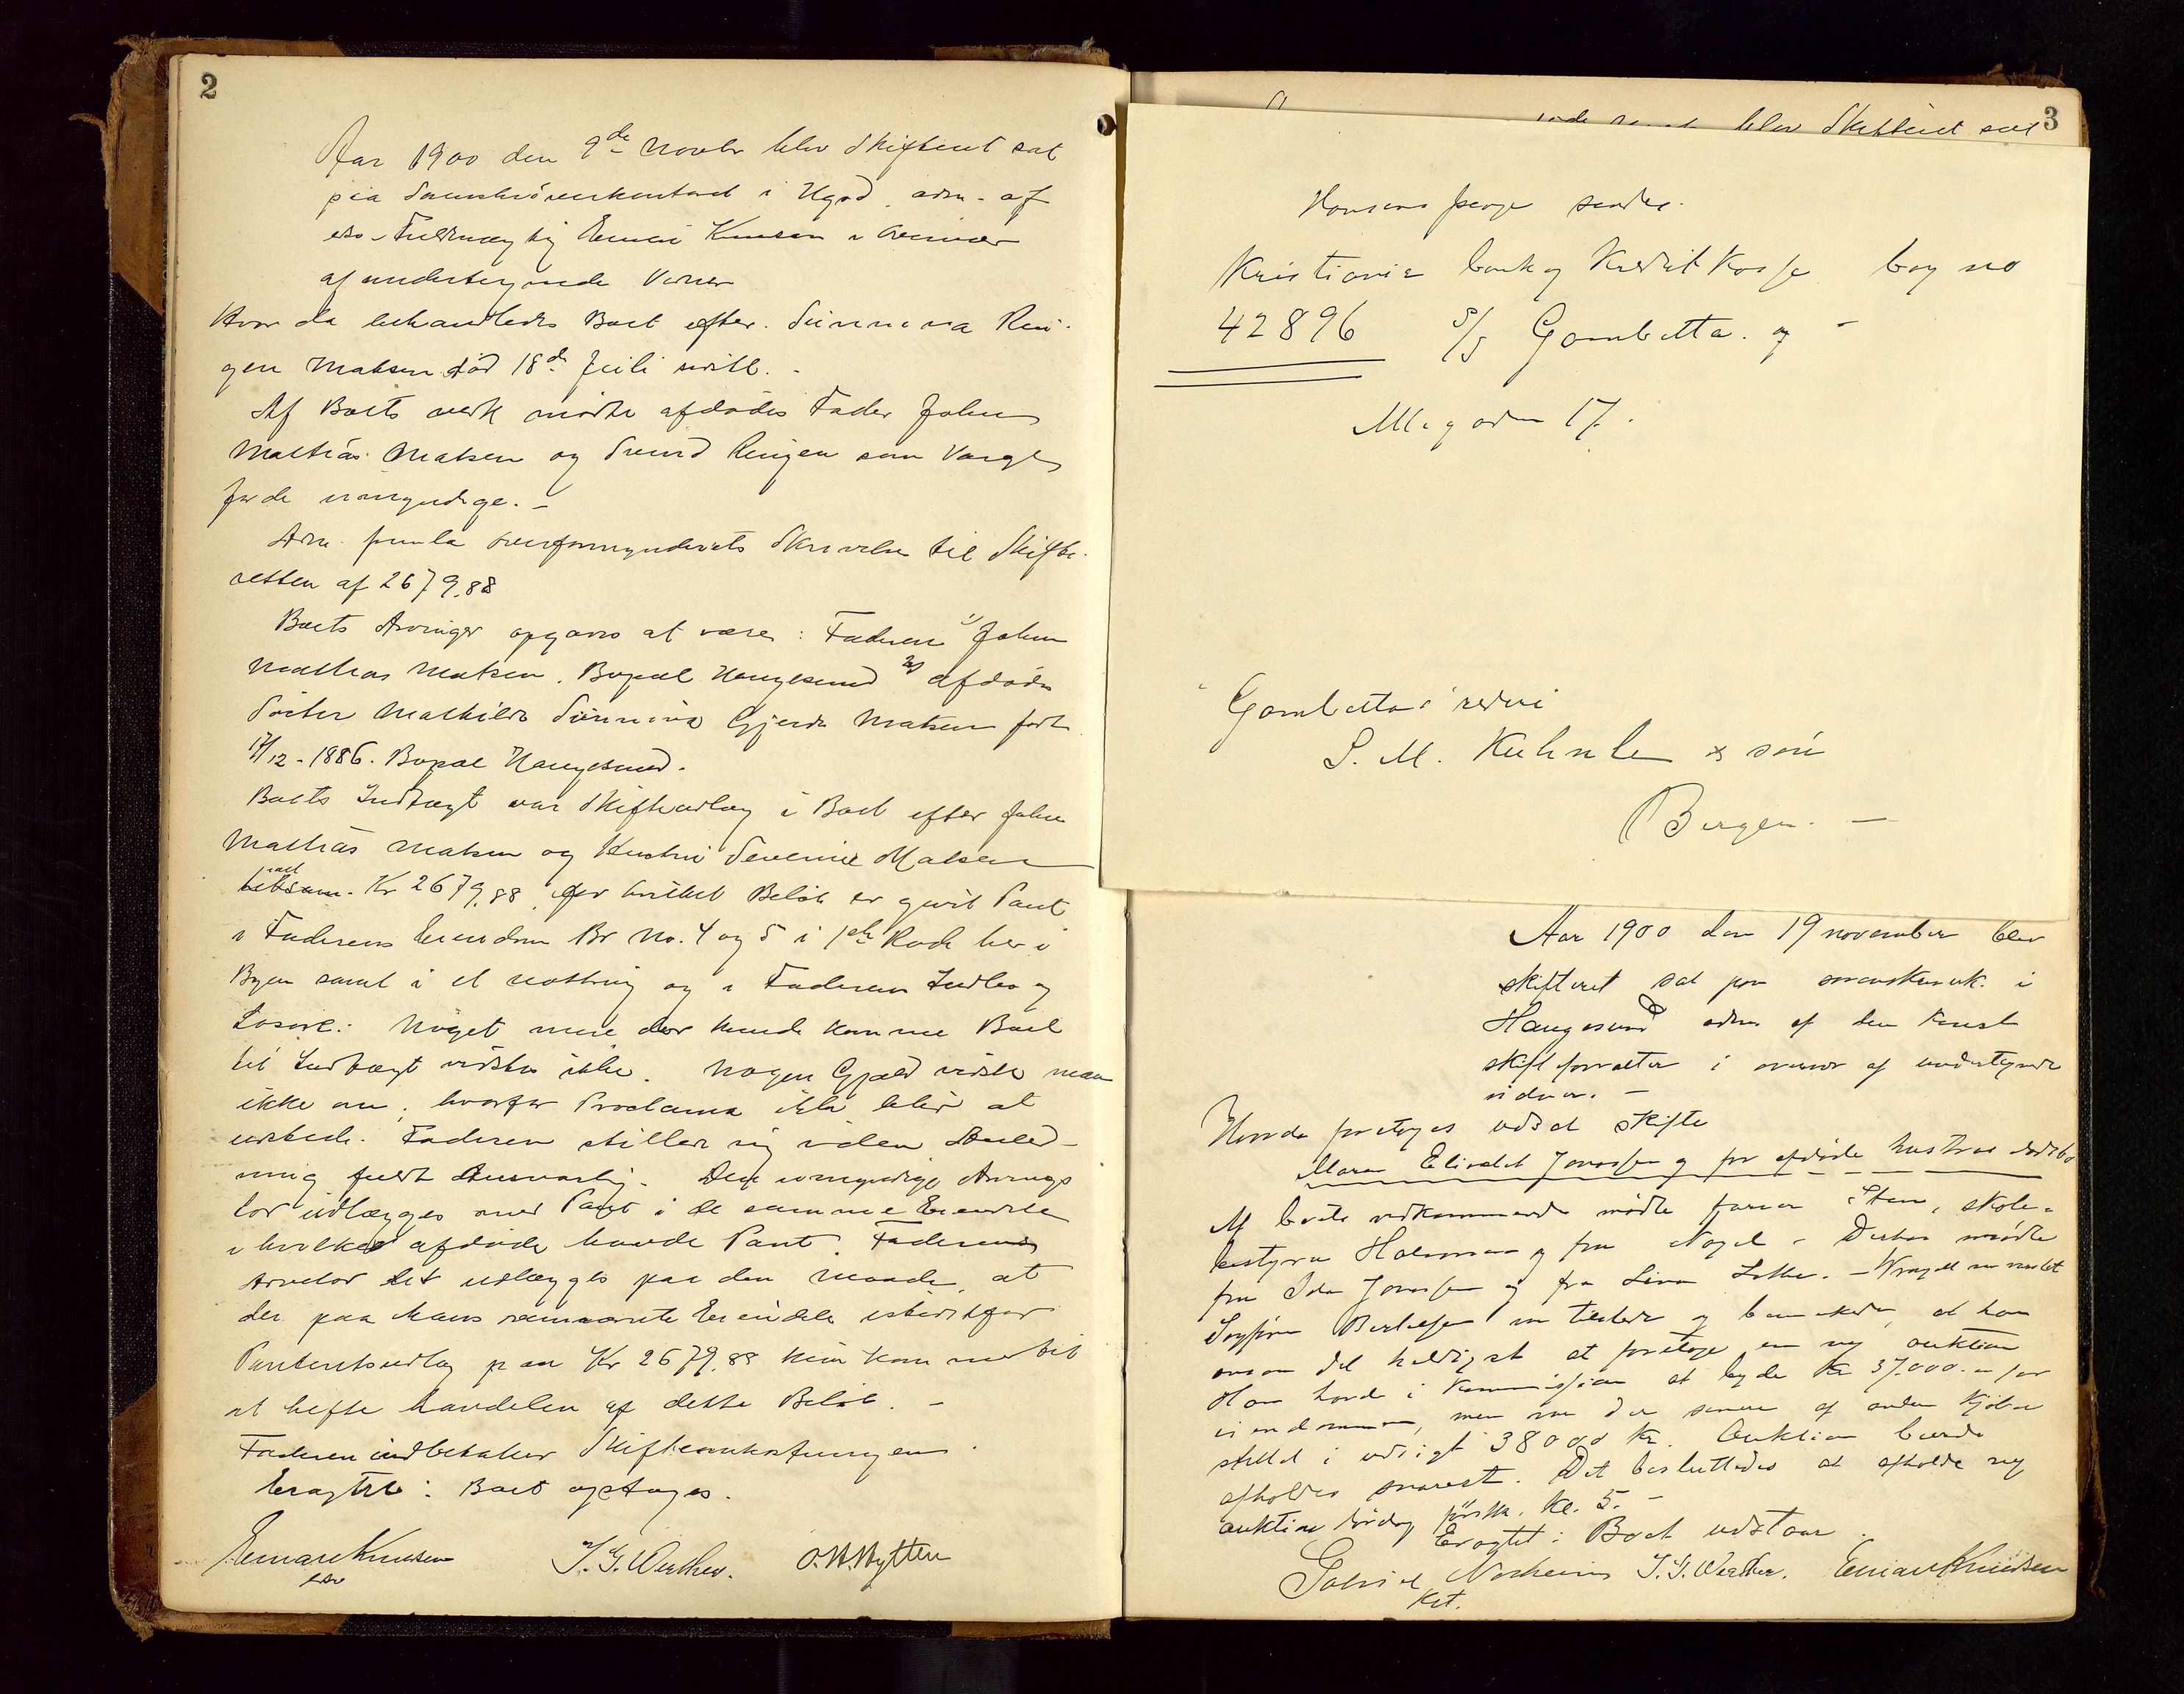 2
Aar 1900 den 9de Novbr blev Skifteret sat
paa Sorenskriverkontoret i Hgsd. adm. af
edsv. Fuldmægtig Einar Knusen i Overvær
af undertegnede Vidner
Hvor da behandledes Boet efter Sünniva Rei-
gen Matsen død 18de Juli sidstl. -
Af Boets vedk mødte afdødes Fader John
Mathias Matsen og Svend Reigen som Værge
for de umyndige. -
Adm. fremla overformynderiets Skrivelse til Skifte-
retten af 2679.88
Boets Arvinger opgaves at være: Faderen 1) John
Mathias Matsen, Bopæl Haugesund 2) afdødes
Søster Mathilde Sünniva Gjerde Matsen født
17/12-1886. Bopæl Haugesund.
Boets Indtægt var Skifteudlæg i Boet efter John
Mathias Matsen og Hustru Severine Matsen
ialt Kr 2679.88, for hvilket Beløb er givet Pant
i Faderens Eiendom Br No. 4 og 5 i 1ste Rode her i
Byen samt i et nothæng og i Faderens Indbo og
Løsøre: Noget mere der kunde komme Boet
til Indtægt vidstes ikke. Nogen Gjæld vidste man
ikke om, hvorfor Proclama ikke blev at
udstede. Faderen stiller sig i den Anled-
ning fuldt Ansvarlig. Den umyndige Arvings
lod udlægges med Pant i de samme Eiendele
i hvilke afdøde havde Pant. Faderens
Arvelod udlægges paa den Maade, at
der paa hans samme Eiendele istedetfor
Panteretsudlæg paa Kr 2679.88 kun kommer til
at hefte halvdelen af dette Beløb. -
Faderen indbetaler Skifteomkostningerne.
Eragtet: Boet optages.
Einar Knusen
edsv
J. G. Werther. O. N. Hytten
3
blev Skifteret sat
Hansens penge sendes
Kristiania bank og Kreditkasse bog no
42896 S/S Gambetta. og -
Meg oden 17.
Gambettas rederi
S. M. Kuhnle & søn
Bergen. -
Aar 1900 den 19 november blev
skifteret sat paa sorenskriverk. i
Haugesund adm af den konst
skifteforvalter i overvær af undertegnede
vidner. -
Hvorda foretoges udsat skifte
Maren Elisabet Jonassen og før afdøde hustrus dødsbo
Af boets vedkommende mødte fuldm Sten, skole-
bestyrer Halvorsen og fru Nagel - Desuden mødte
fru Ida Jonassen og fru Lina Lothe. -
var tilstede og bemærkede, at han
ansaa det heldigst at foretage en ny auktion
Han havde i Kommission at byde Kr 37.000.- for
eiendommen, men var der senere af anden kjøber
stillet i udsigt 38000 Kr. Auktion burde
afholdes snarest. Det besluttedes at afholde ny
auktion lørdag førstk. Kl. 5. -
Eragtet: Boet udstaar.
Gabriel Norheim J. G. Werther. Einar Knudsen
kst.